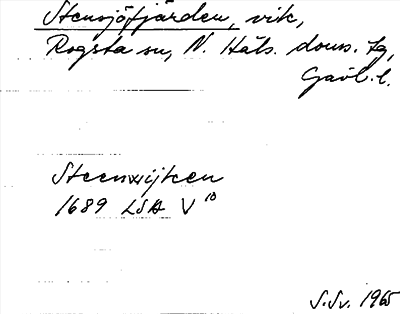 Stensjöfjärden, vik,
Rogsta sn, N. Häls. doms. tg,
Gävl. l.
Steenwijken
1689 LSA V 10
S.Sv. 1965